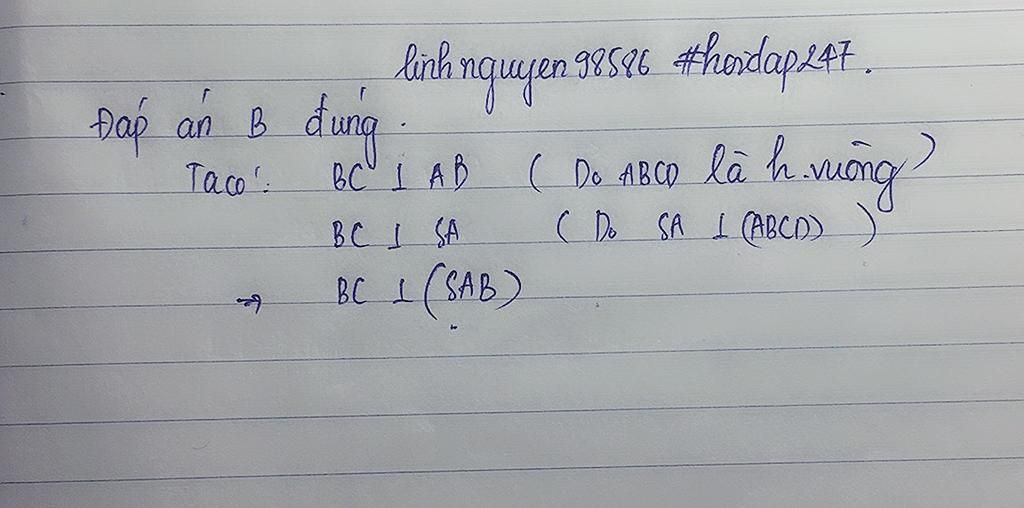 linhnguyen98586 #hoidap247.
Đáp án B đúng.
Ta có: BC ⊥ AB ( Do ABCD là h.vuông )
BC ⊥ SA ( Do SA ⊥ (ABCD) )
→ BC ⊥ (SAB)